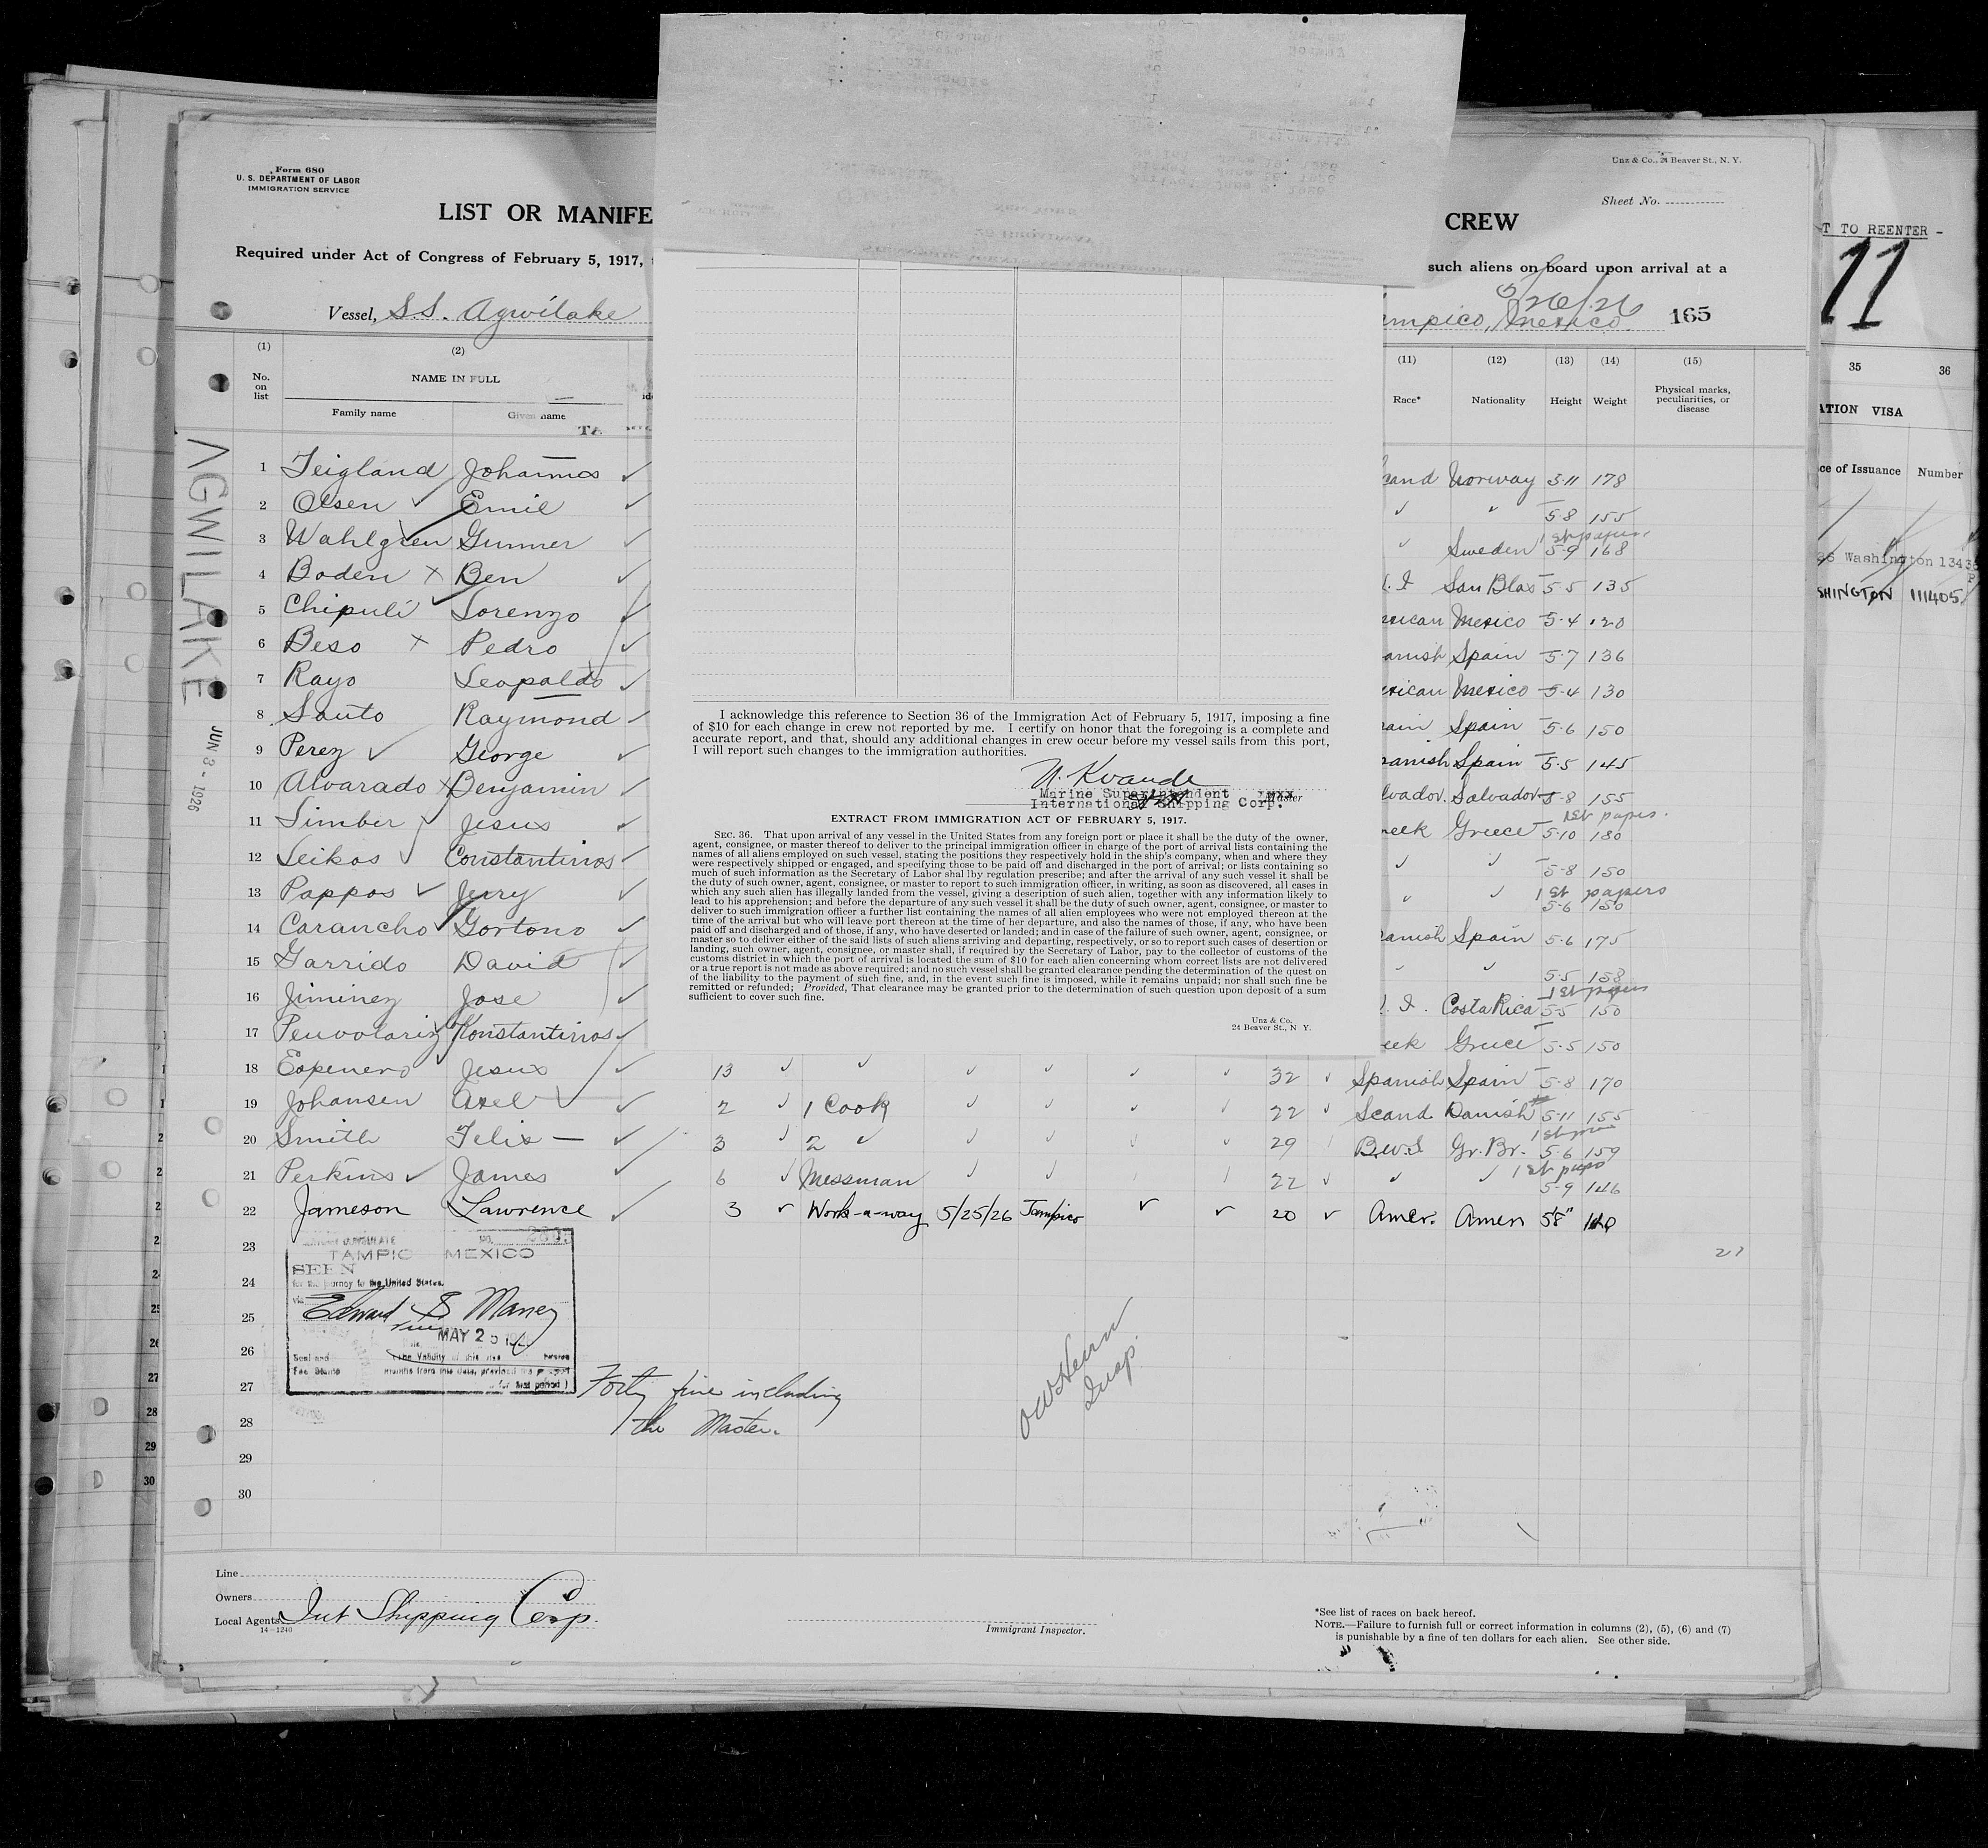 Form 680
U. S. DEPARTMENT OF LABOR
IMMIGRATION SERVICE
Unz & Co., 24 Beaver St., N. Y.
Sheet No.
LIST OR MANIFE
CREW
Required under Act of Congress of February 5, 1917,
such aliens on board upon arrival at a
5/26/26
Vessel, S.S. Agwilake
ampico, Mexico. 165
T TO REENTER -
11
(1) (2) (11) (12) (13) (14) (15)
No. on list NAME IN FULL Race* Nationality Height Weight Physical marks, peculiarities, or disease
Family name Given name
35 36
ATION VISA
ce of Issuance Number
36 Washington 1343
SHINGTON 111405
AGWILAKE
JUN 3 - 1926
1 Teigland Johannes cand Norway 5-11 178
2 Olsen Emil 5-8 155
1st papers
3 Wahlgren Gunner Sweden 5-9 168
4 Boden Ben . I San Blas 5-5 135
5 Chipuli Lorenzo xican Mexico 5-4 120
6 Beso Pedro anish Spain 5-7 136
7 Rayo Leopaldo xican Mexico 5-4 130
8 Souto Raymond pain Spain 5-6 150
9 Perez George panish Spain 5-5 145
10 Alvarado Benjamin lvador. Salvador 5-8 155
1st papers.
11 Limber Jesus reek Greece 5-10 180
12 Leikos Constantinos 5-8 150
1st papers
13 Pappos Jerry 5-6 150
14 Carancho Gortono anish Spain 5-6 175
15 Garrido David 5-5 158
1st papers
16 Jiminez Jose . I. Costa Rica 5-5 150
17 Peuvolariz Konstantinos eek Greece 5-5 150
18 Espenero Jesus 13 32 Spanish Spain 5-8 170
19 Johansen Axel 2 1 Cook 22 Scand Danish 5-11 155
20 Smith Felix — 3 2 " 29 B.W.I Gr. Br. 5-6 159
21 Perkins James 6 Messman 22 5-9 146
22 Jameson Lawrence 3 Work-a-way 5/25/26 Tampico 20 Amer. Amer 5'8" 140
23
24
25
26
27
28
29
30
I acknowledge this reference to Section 36 of the Immigration Act of February 5, 1917, imposing a fine
of $10 for each change in crew not reported by me. I certify on honor that the foregoing is a complete and
accurate report, and that, should any additional changes in crew occur before my vessel sails from this port,
I will report such changes to the immigration authorities.
N. Kvande
Marine Superintendent xxx
International Shipping Corp. Master
EXTRACT FROM IMMIGRATION ACT OF FEBRUARY 5, 1917.
SEC. 36. That upon arrival of any vessel in the United States from any foreign port or place it shall be the duty of the owner,
agent, consignee, or master thereof to deliver to the principal immigration officer in charge of the port of arrival lists containing the
names of all aliens employed on such vessel, stating the positions they respectively hold in the ship's company, when and where they
were respectively shipped or engaged, and specifying those to be paid off and discharged in the port of arrival; or lists containing so
much of such information as the Secretary of Labor shal lby regulation prescribe; and after the arrival of any such vessel it shall be
the duty of such owner, agent, consignee, or master to report to such immigration officer, in writing, as soon as discovered, all cases in
which any such alien has illegally landed from the vessel, giving a description of such alien, together with any information likely to
lead to his apprehension; and before the departure of any such vessel it shall be the duty of such owner, agent, consignee, or master to
deliver to such immigration officer a further list containing the names of all alien employees who were not employed thereon at the
time of the arrival but who will leave port thereon at the time of her departure, and also the names of those, if any, who have been
paid off and discharged and of those, if any, who have deserted or landed; and in case of the failure of such owner, agent, consignee, or
master so to deliver either of the said lists of such aliens arriving and departing, respectively, or so to report such cases of desertion or
landing, such owner, agent, consignee, or master shall, if required by the Secretary of Labor, pay to the collector of customs of the
customs district in which the port of arrival is located the sum of $10 for each alien concerning whom correct lists are not delivered
or a true report is not made as above required; and no such vessel shall be granted clearance pending the determination of the quest on
of the liability to the payment of such fine, and, in the event such fine is imposed, while it remains unpaid; nor shall such fine be
remitted or refunded; Provided, That clearance may be granted prior to the determination of such question upon deposit of a sum
sufficient to cover such fine.
Unz & Co.
24 Beaver St., N Y.
TAMPIC MEXICO
SEEN
for the journey to the United States.
Edward S Maney
MAY 2
Forty five including
the Master.
Line
Owners
Local Agents Int Shipping Corp.
14-1240
Immigrant Inspector.
*See list of races on back hereof.
NOTE.—Failure to furnish full or correct information in columns (2), (5), (6) and (7)
is punishable by a fine of ten dollars for each alien. See other side.